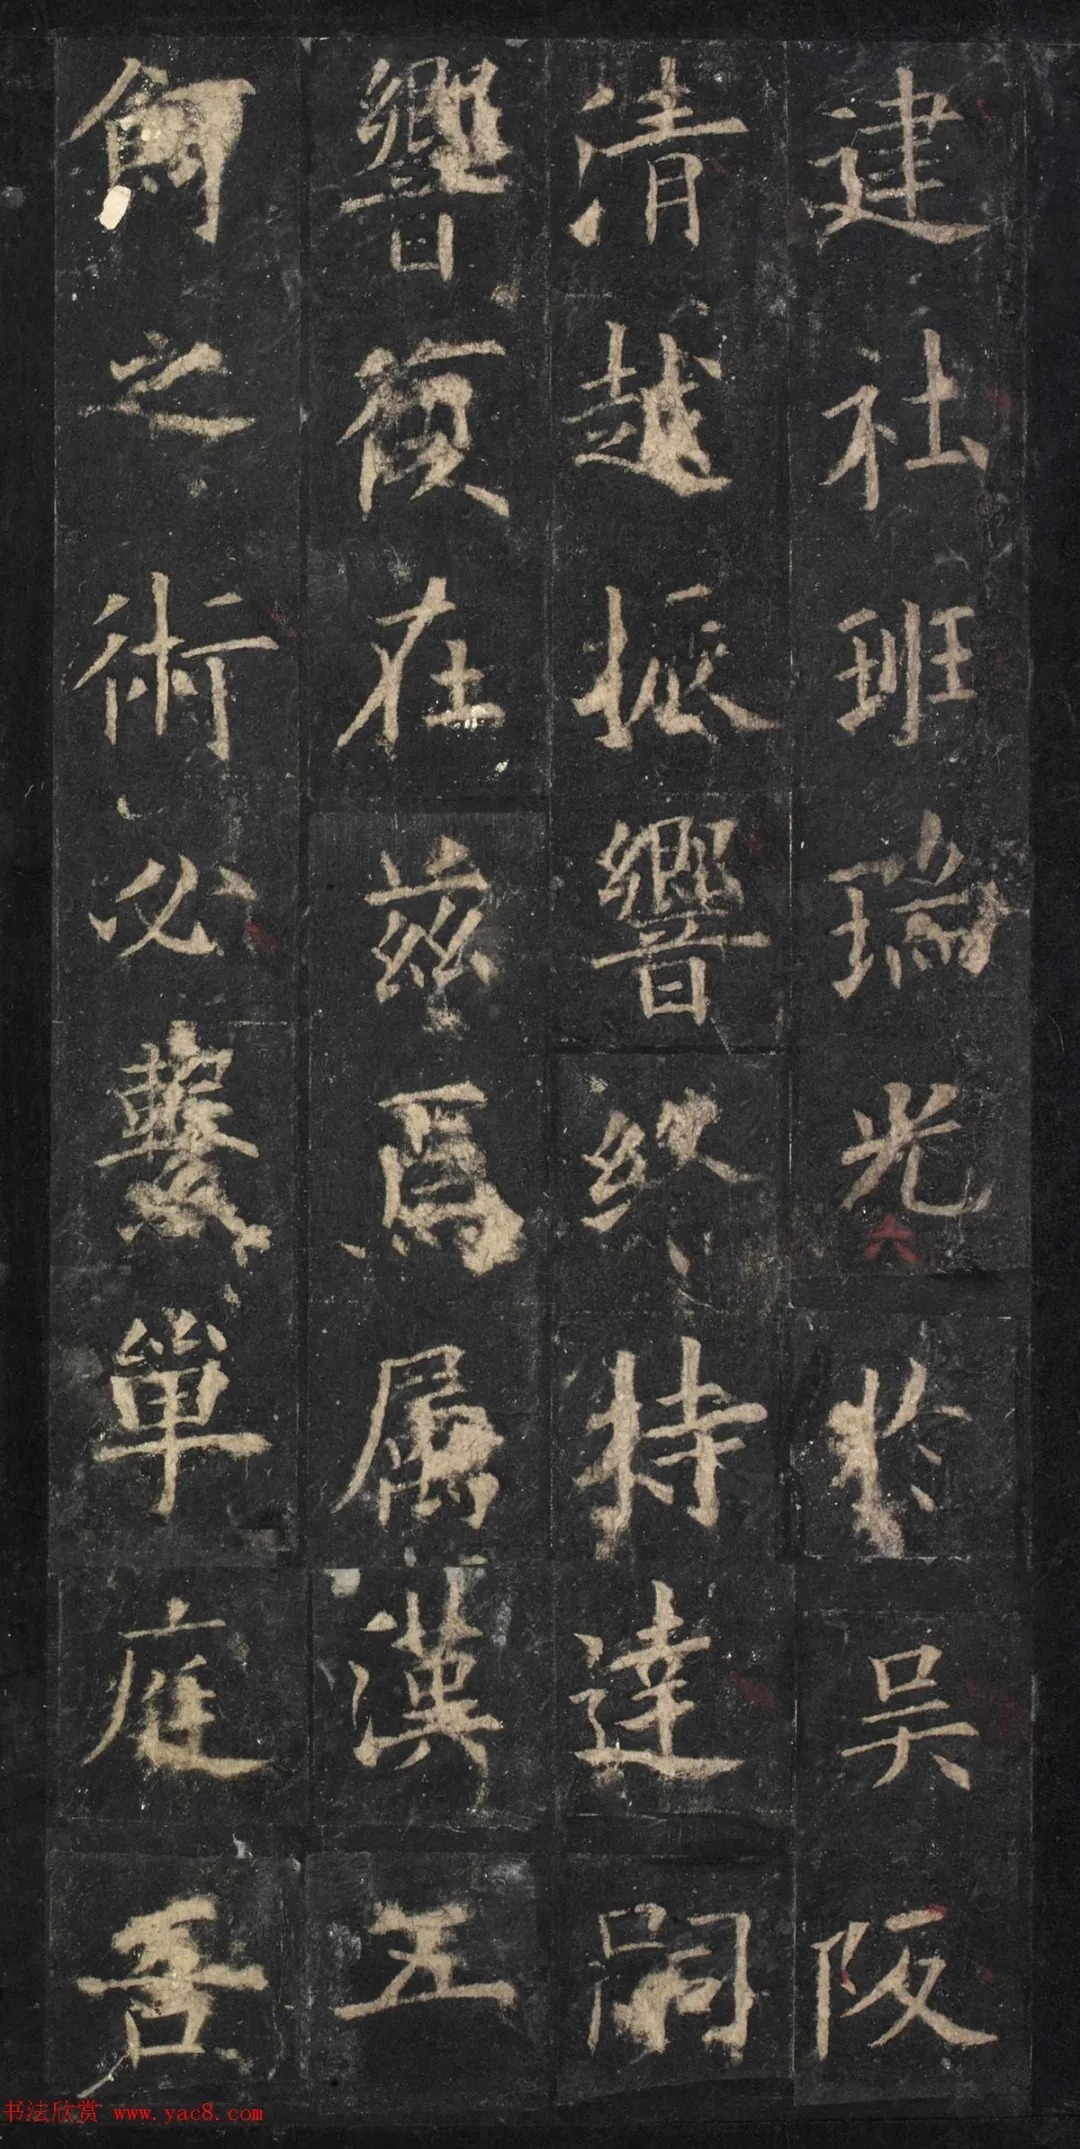 建社班瑞光於吴阪
清越振響終特達嗣
響復在兹焉属漢五
餌之術必繫單庭吾
六
书法欣赏 www.yac8.com